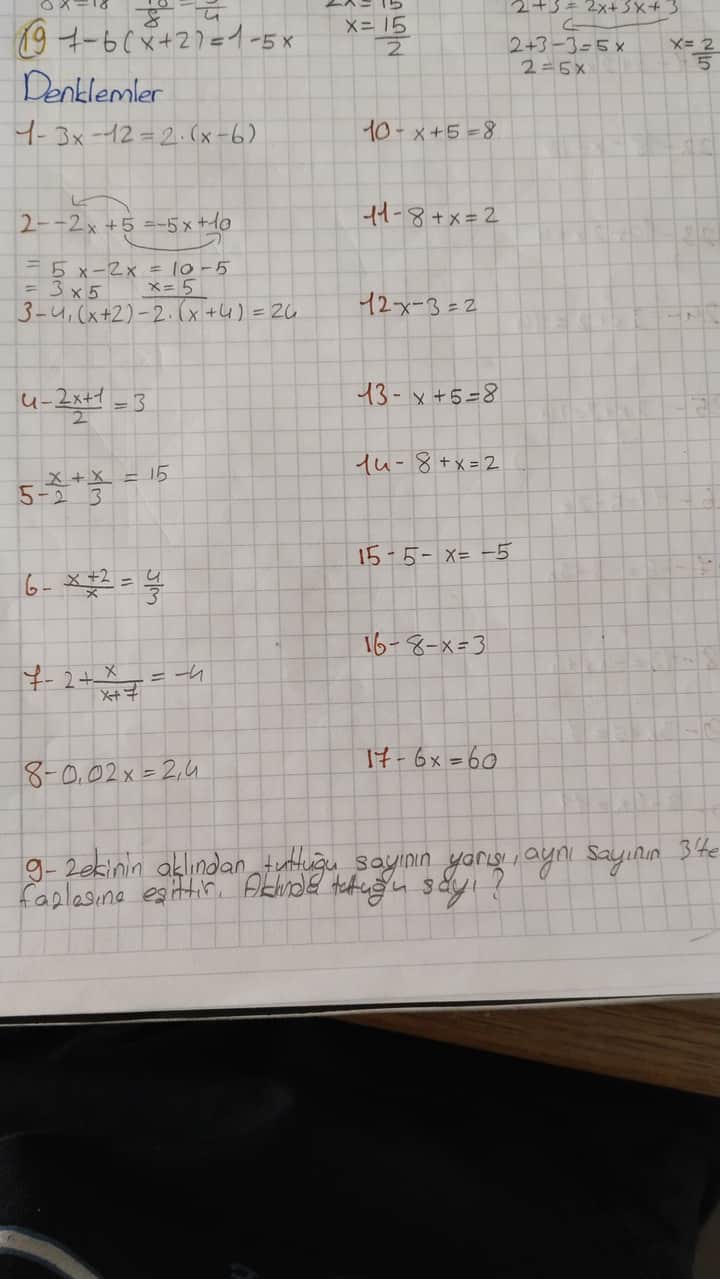 8x=18 18/8 = 9/4
2x=15
x=15/2
2+3=2x+3x+3
2+3-3=5x
2=5x
x=2/5
19 7-6(x+2)=1-5x
Denklemler
1- 3x-12=2.(x-6)
2- -2x+5=-5x+10
= 5x-2x=10-5
= 3x5 x=5
3- 4.(x+2)-2.(x+4)=24
4- 2x+1/2 = 3
5- x/2 + x/3 = 15
6- x+2/x = 4/3
7- 2+ x/x+7 = -4
8- 0,02x=2,4
10- x+5=8
11- 8+x=2
12 x-3=2
13- x+5=8
14- 8+x=2
15- 5-x=-5
16- 8-x=3
17- 6x=60
9- Zekinin aklından tuttuğu sayının yarısı, aynı sayının 3'te
fazlasına eşittir. Aklında tutuğu sayı?